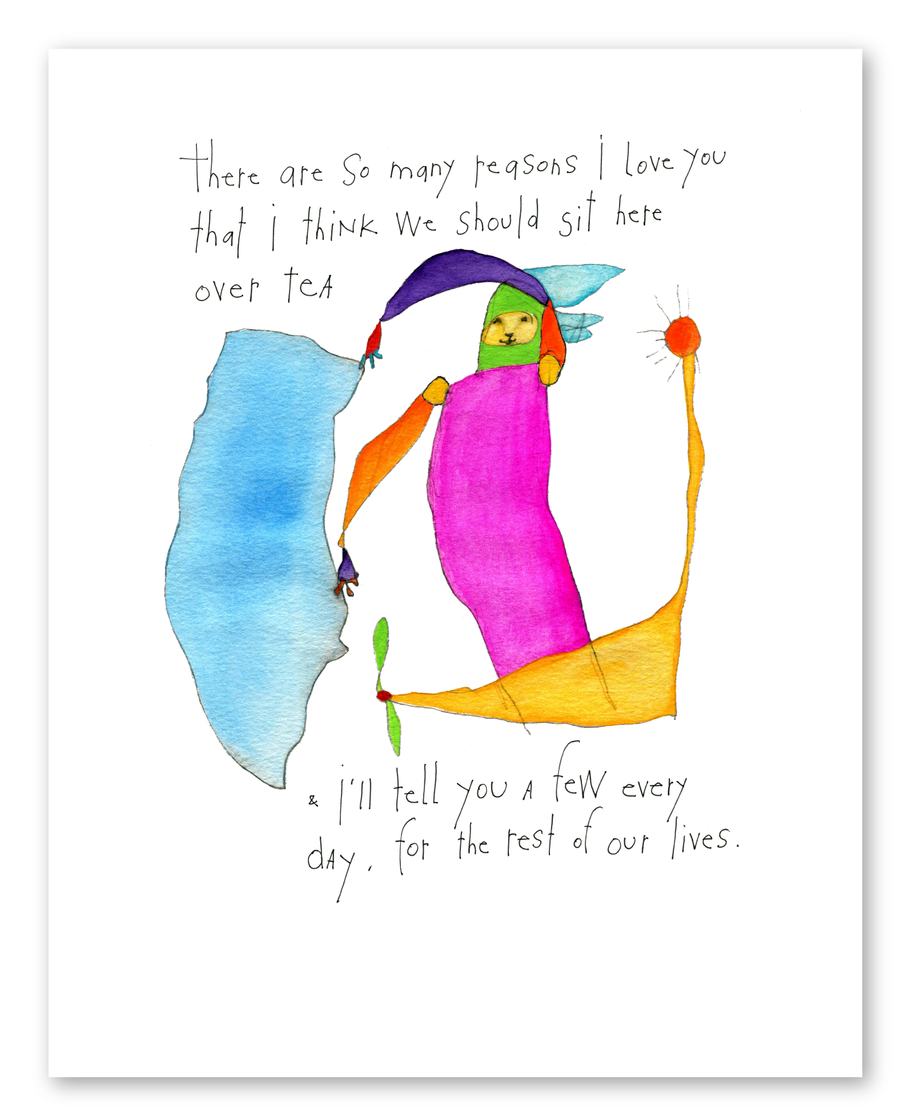 there are so many reasons i love you
that i thiNK We should sit here
over teA
& i'll tell you A feW every
dAy, for the rest of our lives.